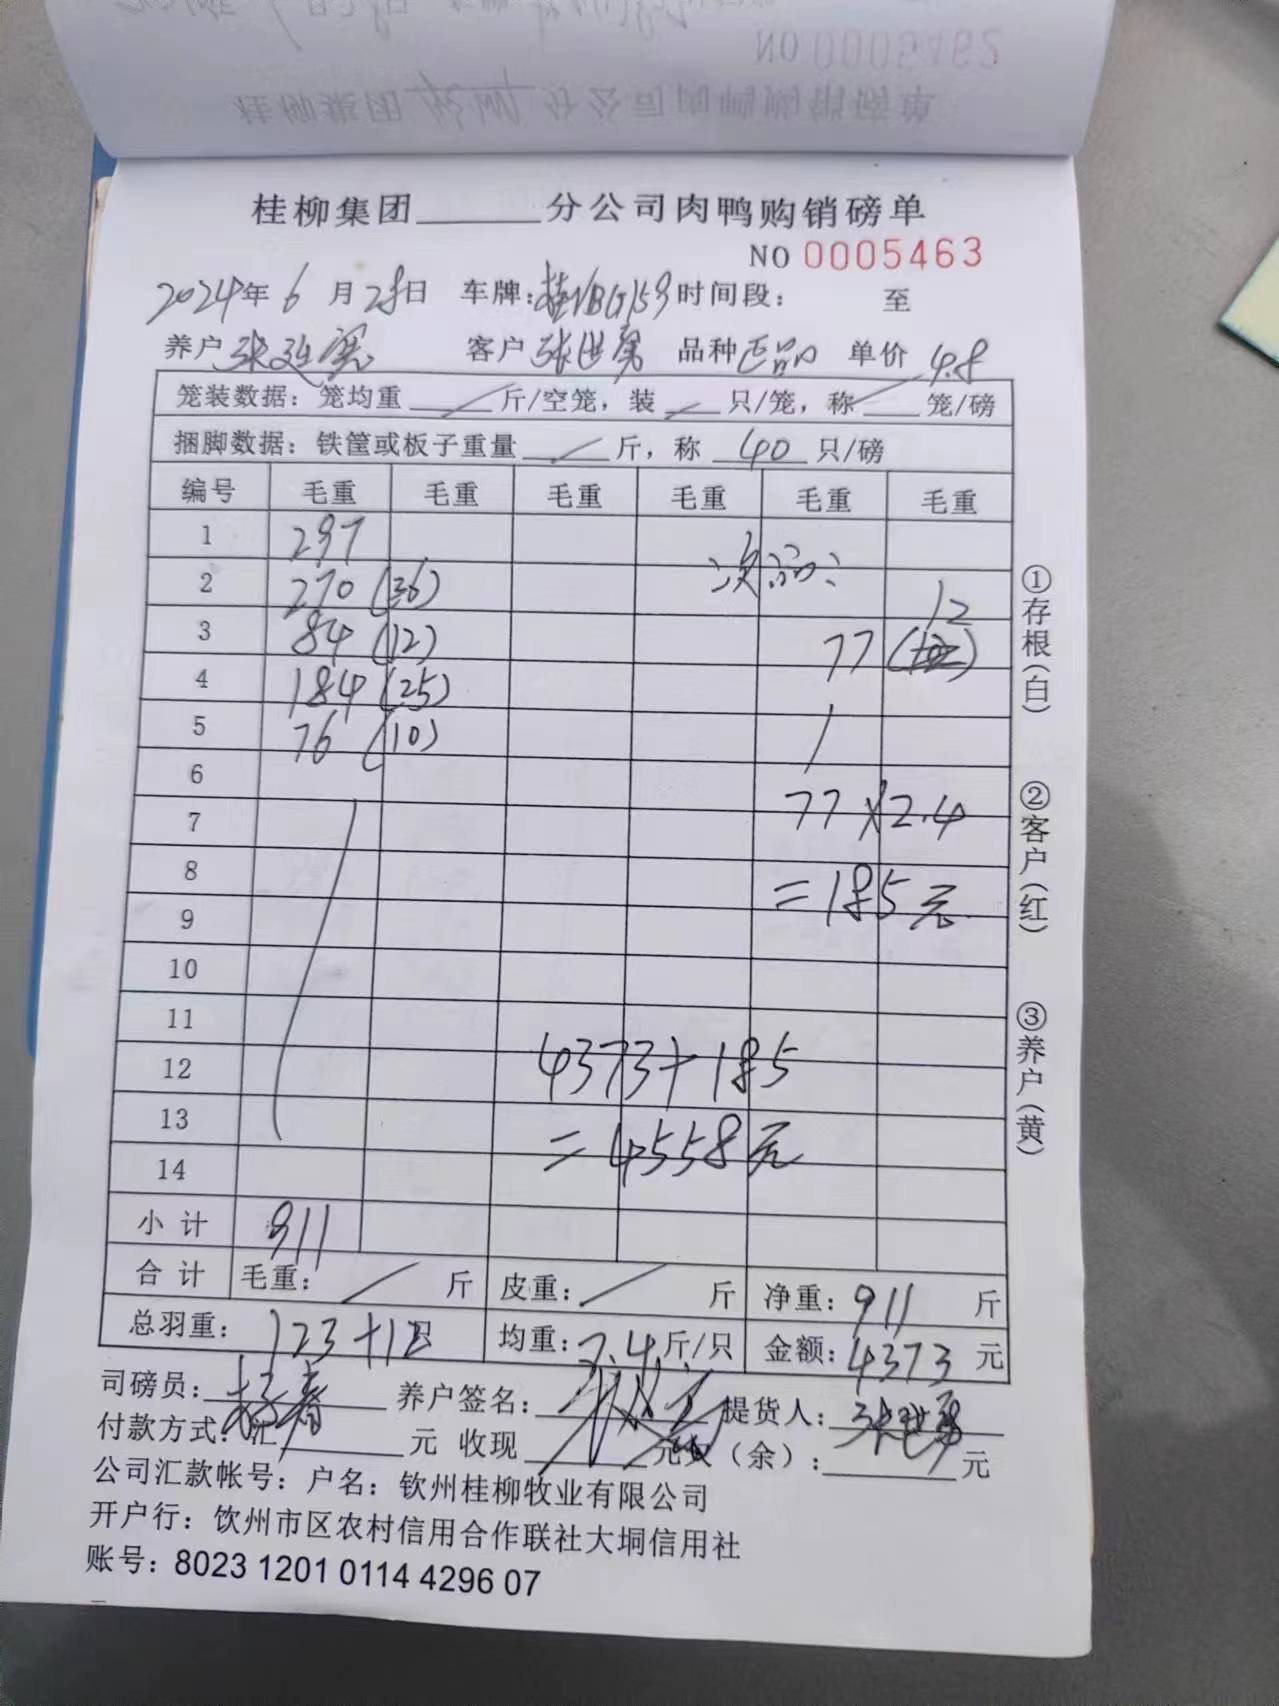 NO 0005462
桂柳集团 分公司肉鸭购销磅单
桂柳集团______分公司肉鸭购销磅单
NO 0005463
2024年 6 月 28日 车牌: 时间段: 至
养户 客户 品种 正品 单价 4.8
笼装数据: 笼均重 / 斤/空笼, 装 / 只/笼, 称 / 笼/磅
捆脚数据: 铁筐或板子重量 / 斤, 称 40 只/磅
编号 毛重 毛重 毛重 毛重 毛重 毛重
1 297
2 270 (36) 次品: 12
3 84 (12) 77
4 184 (25)
5 76 (10)
6 77×2.4
7
8 =185元
9
10
11
12 4373+185
13 =4558元
14
小计 911
合计 毛重: / 斤 皮重: / 斤 净重: 911 斤
总羽重: 123+12只 均重: 7.4斤/只 金额: 4373 元
司磅员: 养户签名: 提货人:
付款方式: 汇 元 收现 元 (余): 元
公司汇款帐号: 户名: 钦州桂柳牧业有限公司
开户行: 钦州市区农村信用合作联社大垌信用社
账号: 8023 1201 0114 4296 07
①存根(白)
②客户(红)
③养户(黄)